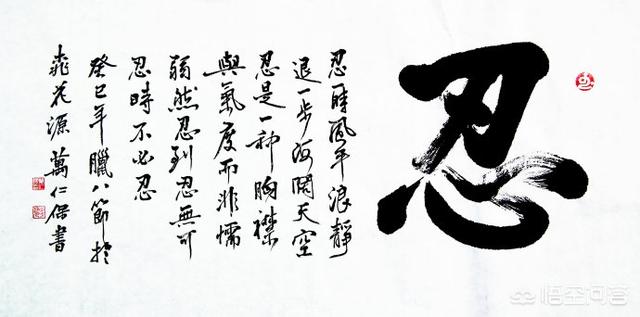 忍
忍時風平浪靜
退一步海闊天空
忍是一种胸襟
與氣度而非懦
弱然忍到忍無可
忍時不必忍
癸巳年臘八節於
桃花源萬仁保書
悟空问答